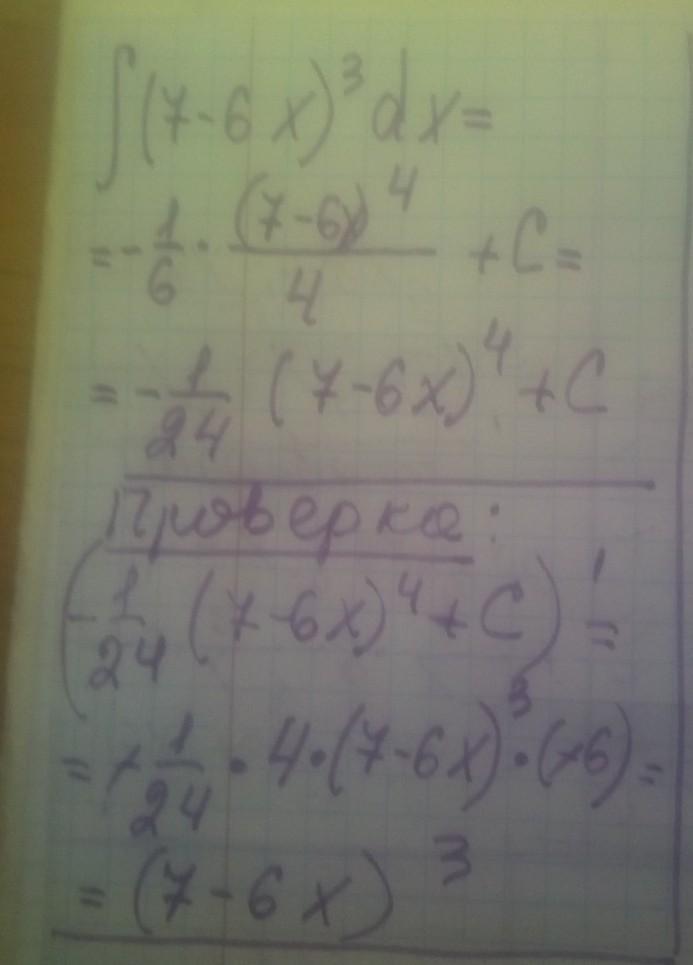 ∫(7-6x)³dx=
=-1/6·(7-6x)⁴/4+C=
=-1/24(7-6x)⁴+C
Проверка:
(-1/24(7-6x)⁴+C)'=
=+1/24·4·(7-6x)³·(+6)=
=(7-6x)³